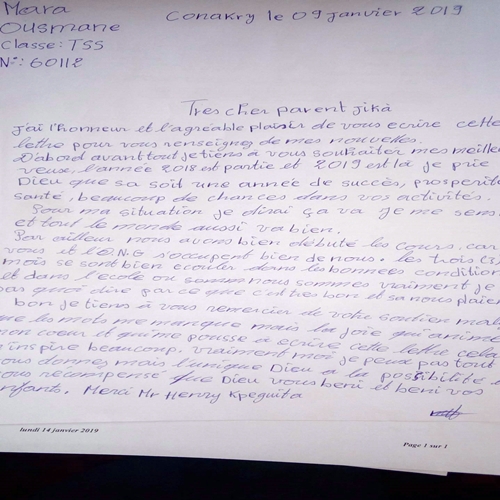 Mara
OUSMANE
Classe: TSS
N°: 60112
Conakry le 09 janvier 2019
Tres cher parent jikà
j'ai l'honneur et l'agréable plaisir de vous ecrire cette
lettre pour vous renseigner de mes nouvelles.
D'abord avant tout je tiens à vous souhaiter mes meille
veux, l'année 2018 est partie et 2019 est là je prie
Dieu que sa soit une année de succès, prosperité
santé, beaucoup de chances dans vos activités.
Pour ma situation je dirai ça va je me sens
et tout le monde aussi va bien.
Par ailleur nous avons bien débuté les cours, car
vous et l'O.N.G s'occupent bien de nous. les trois (3)
mois se sont bien écouler dans les bonnes condition
et dans l'ecole ou nous sommes vraiment je
pas quoi dire par ce que c'est tres bon et sa nous plaie
bon je tiens à vous remercier de votre soutien mal
que les mots me manque mais la joie qui anime
mon coeur et qui me pousse à ecrire cette lettre cela
inspire beaucoup. vraiment moi je peux pas tout
vous donnez mais l'unique Dieu a la possibilité
vous récompensé que Dieu vous beni et beni vos
enfants. Merci Mr Henry Kpeguita
lundi 14 janvier 2019
Page 1 sur 1